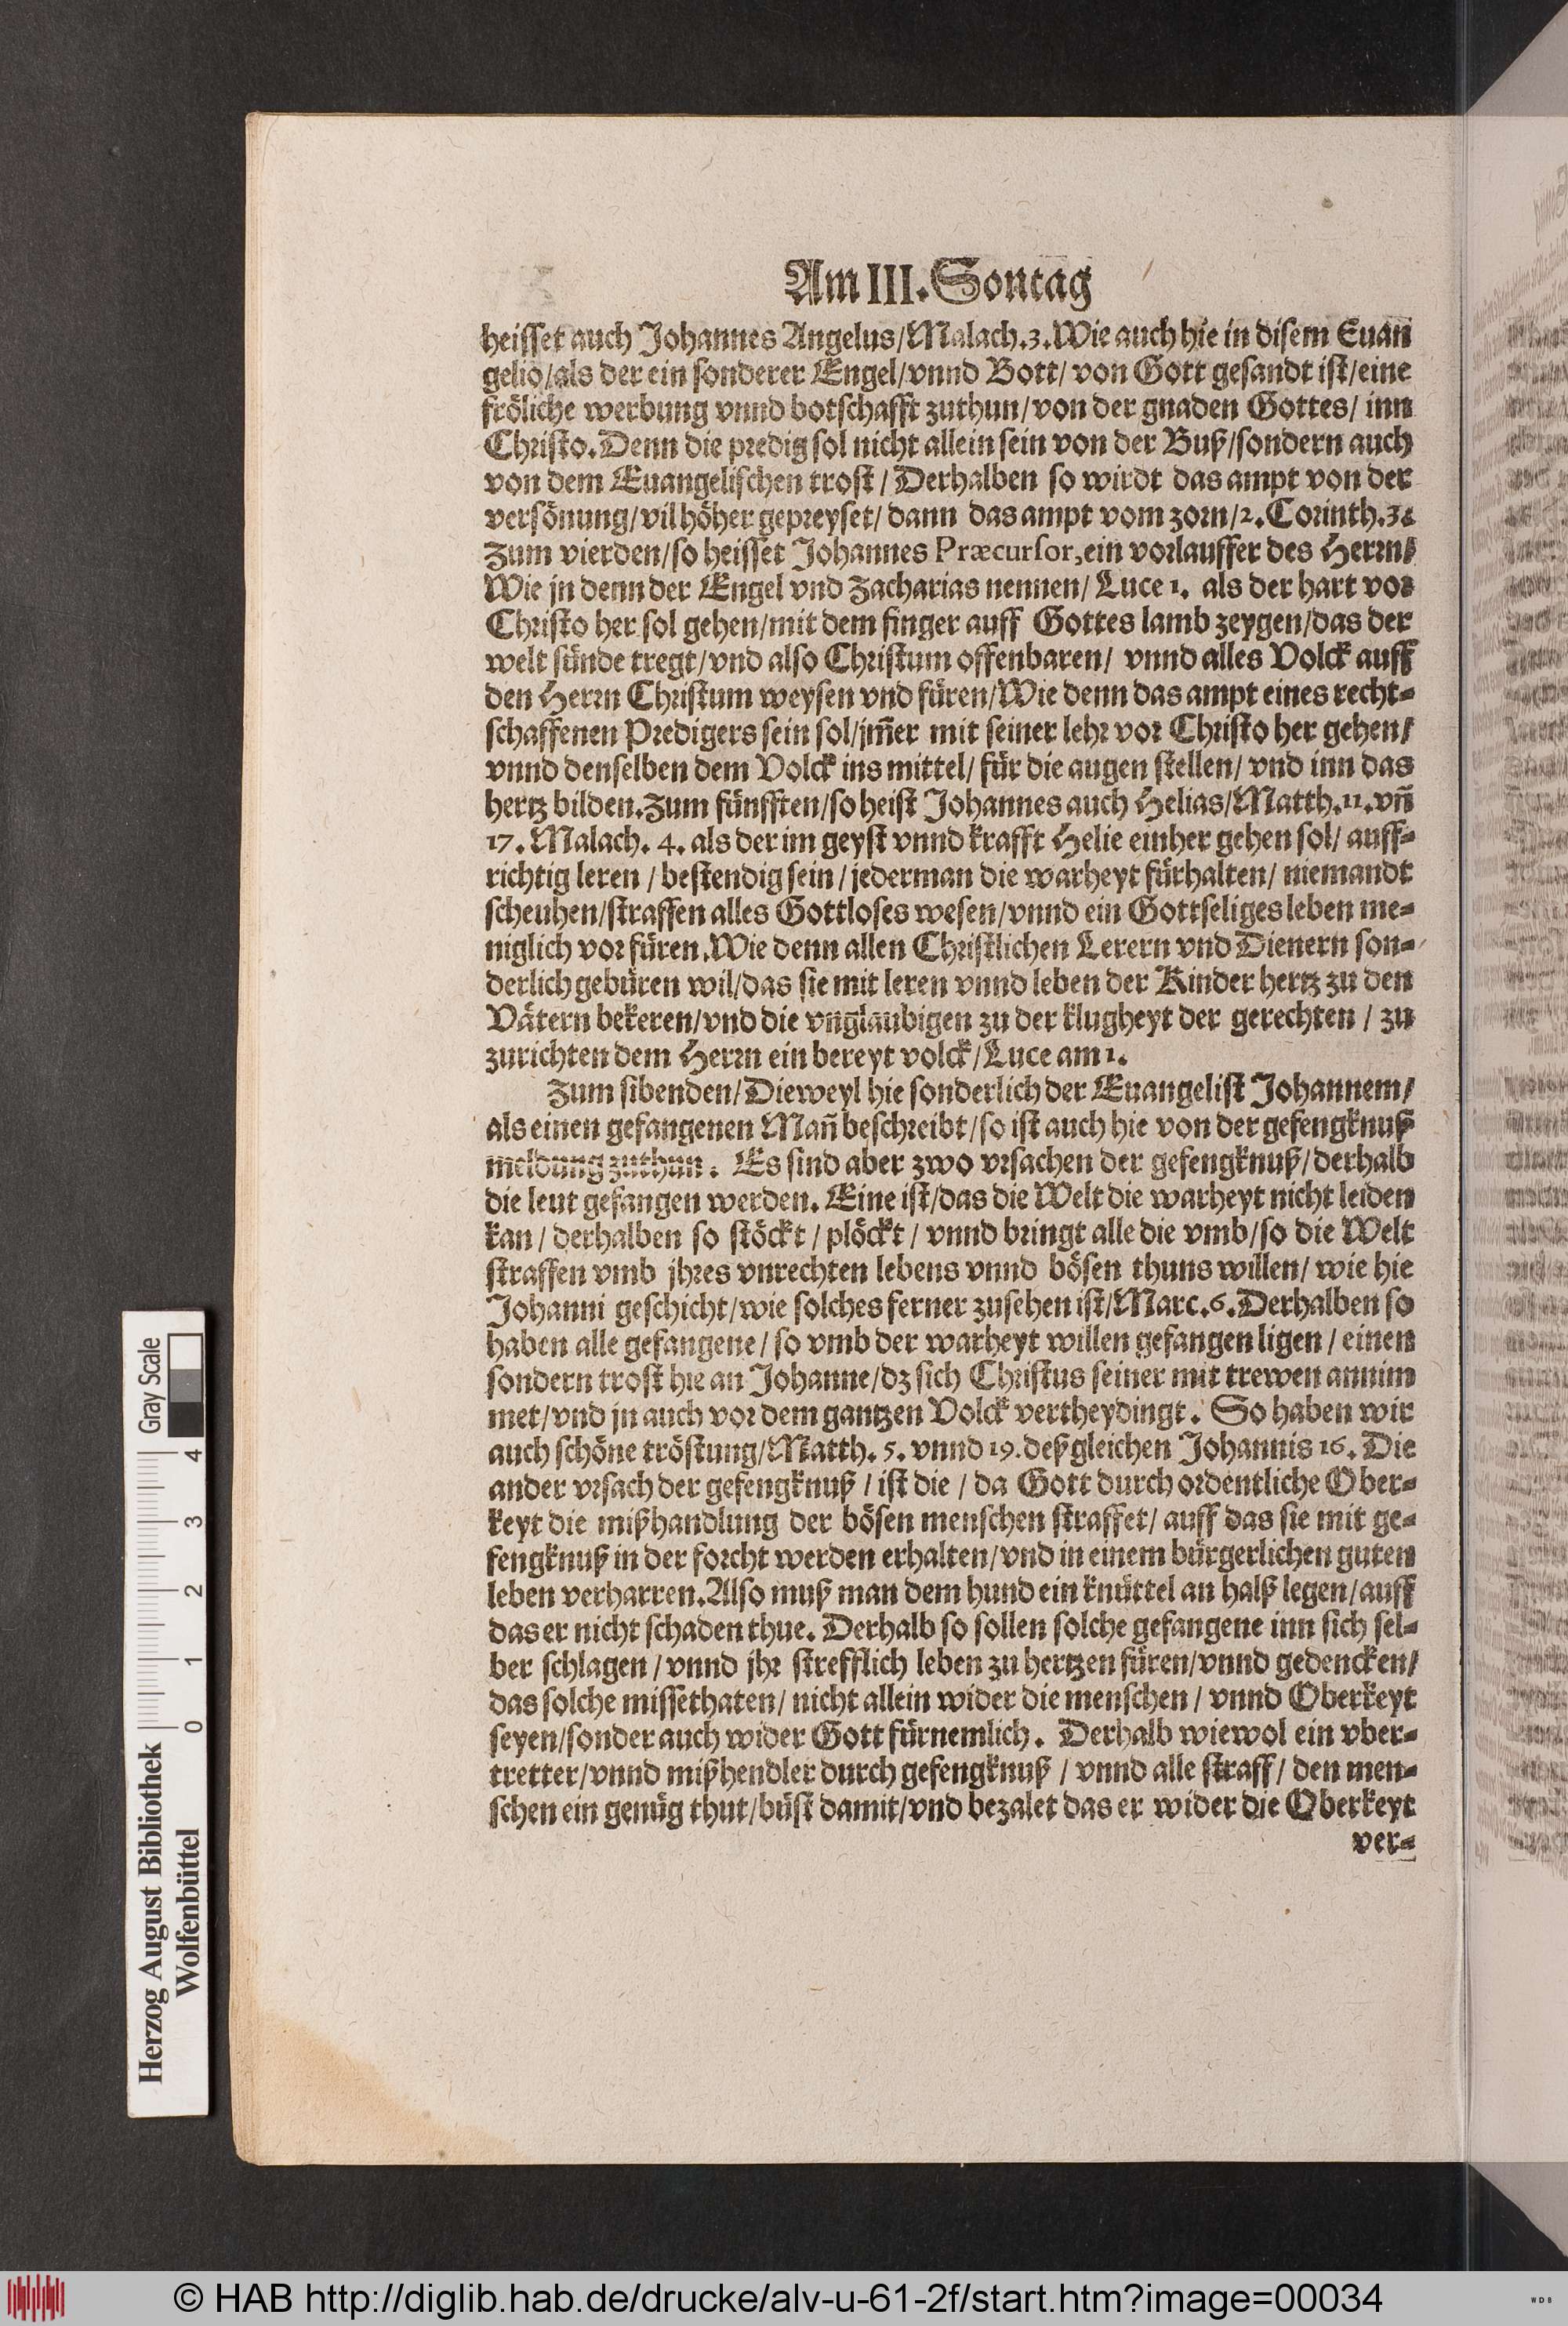 Am III. Sontag
heisset auch Johannes Angelus/Malach.3.Wie auch hie in disem Euan
gelio/als der ein sonderer Engel/vnnd Bott/ von Gott gesandt ist/eine
fröliche werbung vnnd botschafft zuthun/von der gnaden Gottes/ inn
Christo.Denn die predig sol nicht allein sein von der Buß/sondern auch
von dem Euangelischen trost / Derhalben so wirdt das ampt von der
versönung/vil höher gepreyset/ dann das ampt vom zorn/2.Corinth.3.
Zum vierden/so heisset Johannes Præcursor,ein vorlauffer des Herrn/
Wie jn denn der Engel vnd Zacharias nennen/ Luce 1. als der hart vor
Christo her sol gehen/mit dem finger auff Gottes lamb zeygen/das der
welt sünde tregt/vnd also Christum offenbaren/ vnnd alles Volck auff
den Herrn Christum weysen vnd füren/Wie denn das ampt eines recht-
schaffenen Predigers sein sol/jm̃er mit seiner lehr vor Christo her gehen/
vnnd denselben dem Volck ins mittel/ für die augen stellen/ vnd inn das
hertz bilden.Zum fünfften/so heist Johannes auch Helias/Matth.11.vñ
17. Malach. 4. als der im geyst vnnd krafft Helie einher gehen sol/ auff-
richtig leren / bestendig sein / jederman die warheyt fürhalten/ niemandt
scheuhen/straffen alles Gottloses wesen/vnnd ein Gottseliges leben me-
niglich vor füren.Wie denn allen Christlichen Lerern vnd Dienern son-
derlich gebüren wil/das sie mit leren vnnd leben der Kinder hertz zu den
Vätern bekeren/vnd die vnglaubigen zu der klugheyt der gerechten / zu
zurichten dem Herrn ein bereyt volck/Luce am 1.
Zum sibenden/Dieweyl hie sonderlich der Euangelist Johannem/
als einen gefangenen Mañ beschreibt/so ist auch hie von der gefengknuß
meldung zuthun. Es sind aber zwo vrsachen der gefengknuß/derhalb
die leut gefangen werden. Eine ist/das die Welt die warheyt nicht leiden
kan / derhalben so stöckt / plöckt / vnnd bringt alle die vmb/so die Welt
straffen vmb jhres vnrechten lebens vnnd bösen thuns willen/ wie hie
Johanni geschicht/wie solches ferner zusehen ist/Marc.6.Derhalben so
haben alle gefangene / so vmb der warheyt willen gefangen ligen / einen
sondern trost hie an Johanne/dz sich Christus seiner mit trewen annim
met/vnd jn auch vor dem gantzen Volck vertheydingt. So haben wir
auch schöne tröstung/Matth. 5. vnnd 19. deßgleichen Johannis 16. Die
ander vrsach der gefengknuß / ist die / da Gott durch ordentliche Ober-
keyt die mißhandlung der bösen menschen straffet/ auff das sie mit ge-
fengknuß in der forcht werden erhalten/vnd in einem bürgerlichen guten
leben verharren.Also muß man dem hund ein knüttel an halß legen/auff
das er nicht schaden thue. Derhalb so sollen solche gefangene inn sich sel-
ber schlagen / vnnd jhr strefflich leben zu hertzen füren/vnnd gedencken/
das solche missethaten/ nicht allein wider die menschen / vnnd Oberkeyt
seyen/sonder auch wider Gott fürnemlich. Derhalb wiewol ein vber-
tretter/vnnd mißhendler durch gefengknuß / vnnd alle straff/ den men-
schen ein genüg thut/büst damit/vnd bezalet das er wider die Oberkeyt
ver-
Gray Scale
4 3 2 1 0
Herzog August Bibliothek
Wolfenbüttel
© HAB http://diglib.hab.de/drucke/alv-u-61-2f/start.htm?image=00034
WDB